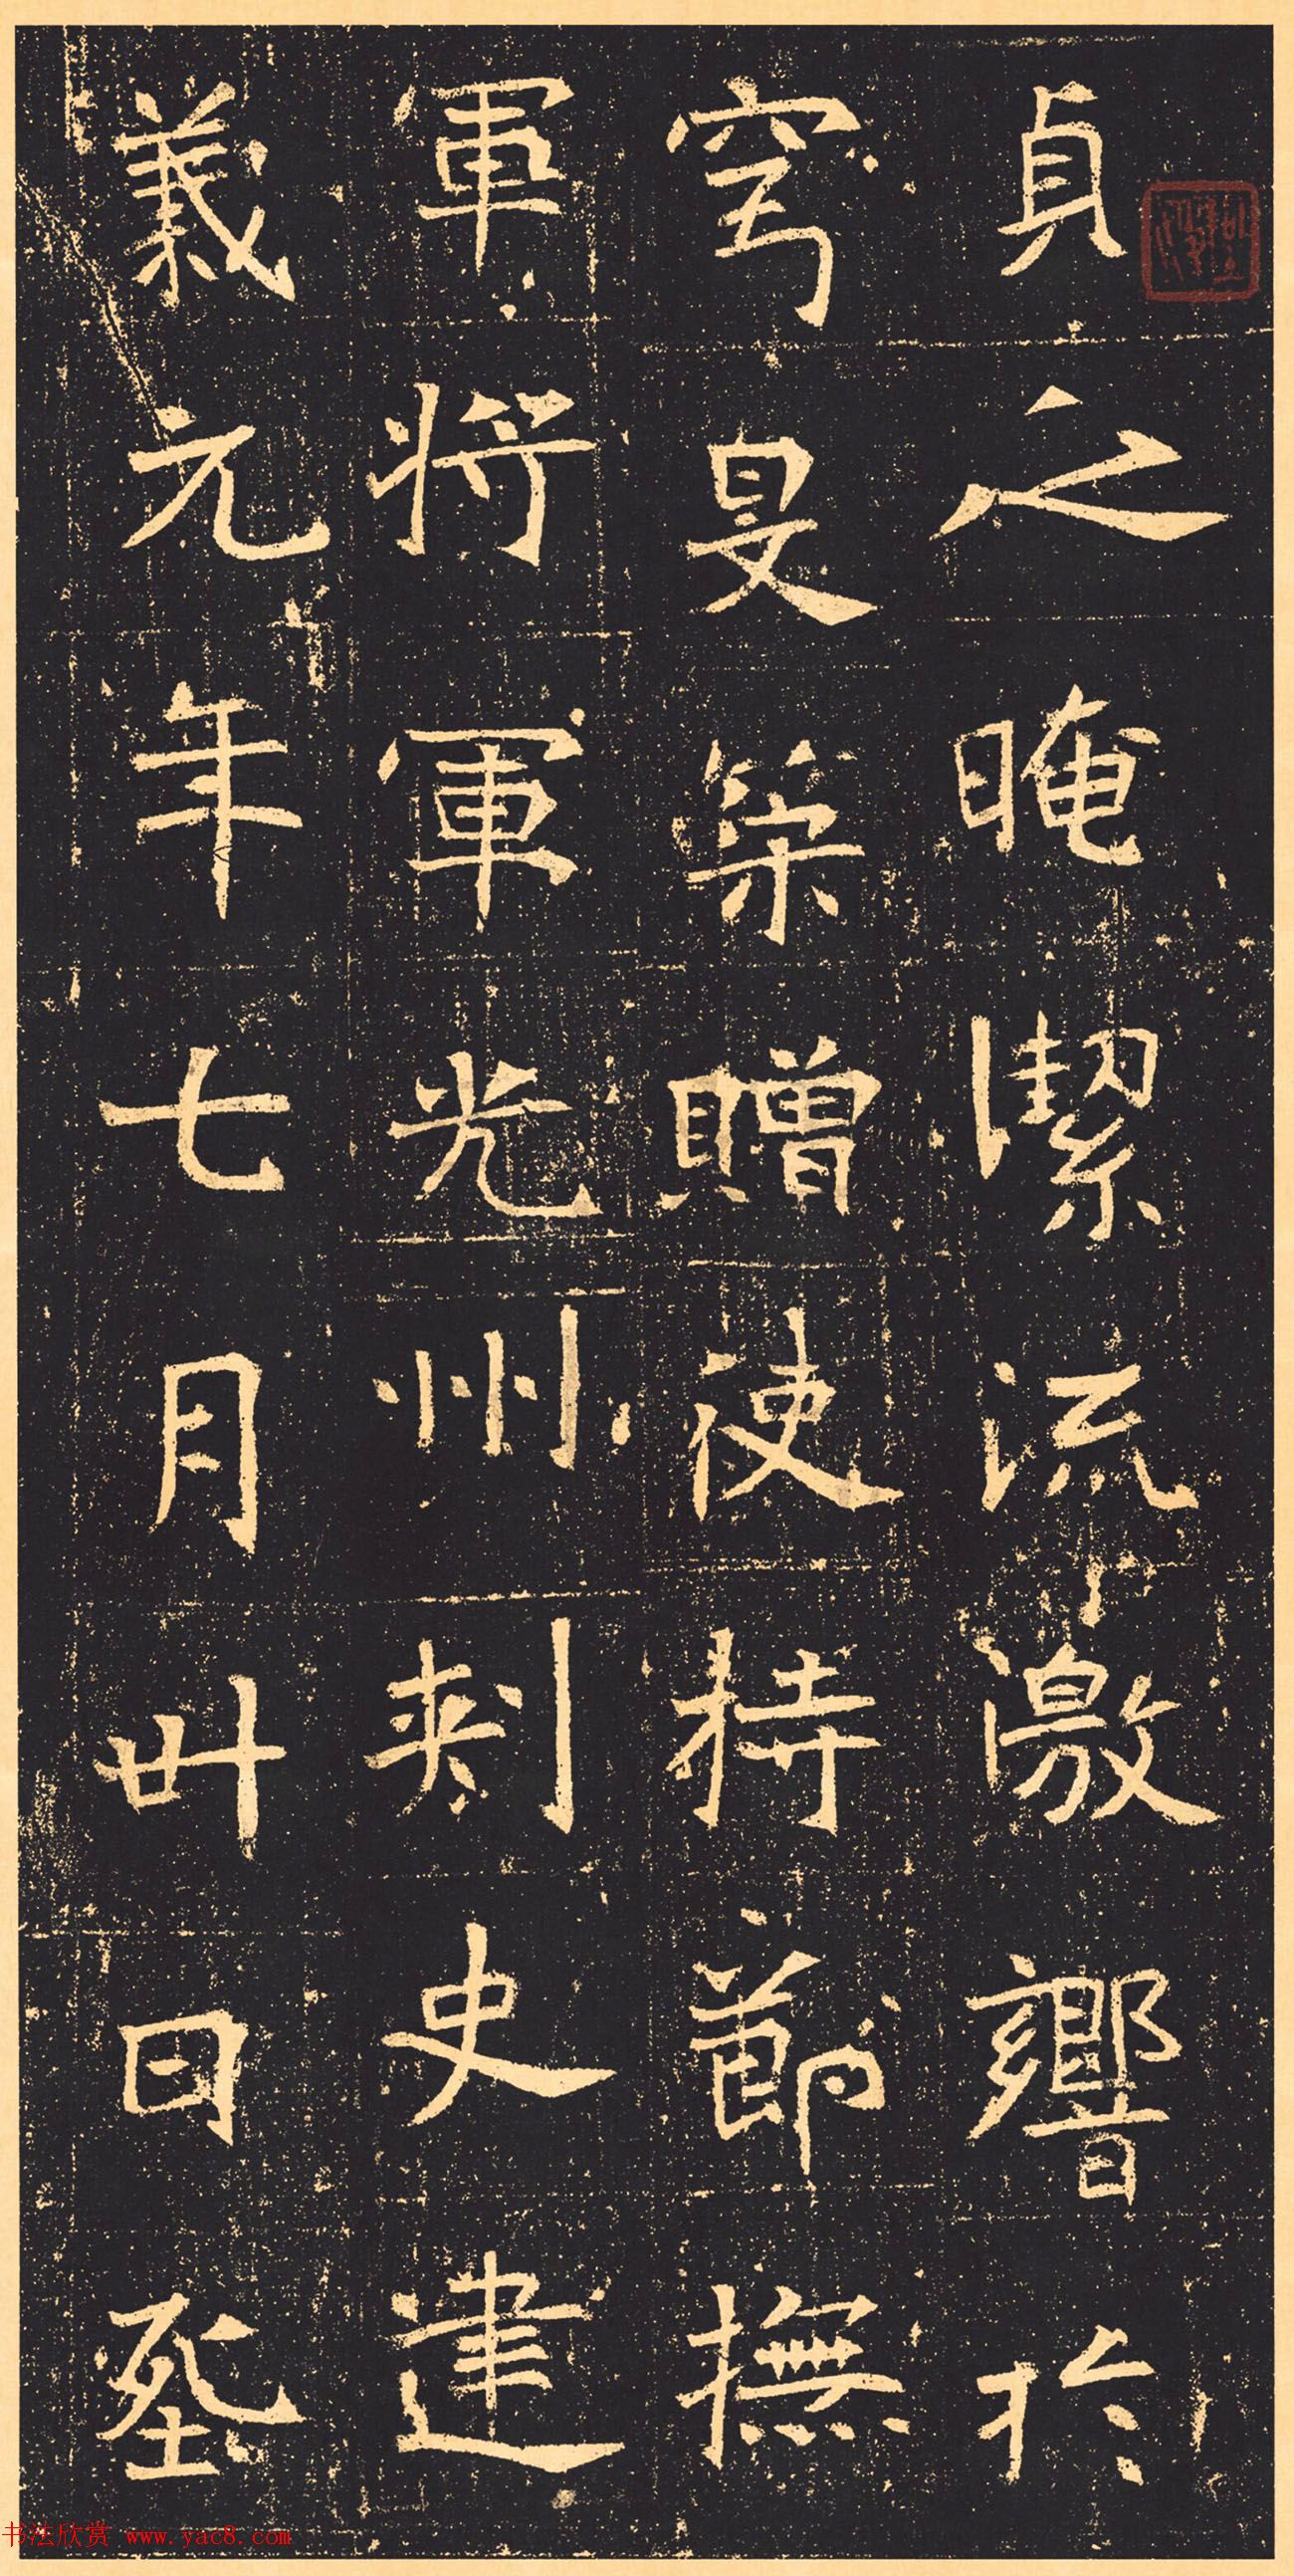 貞之晻潔流激響於
穹旻築贈使持節撫
軍將軍光州刺史建
義元年七月卅日葬
书法欣赏 www.yac8.com